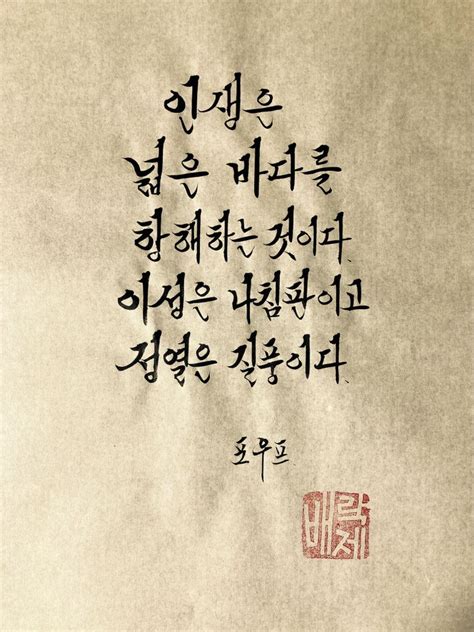 인생은
넓은 바다를
항해하는 것이다.
이성은 나침판이고
정열은 질풍이다.
포우프
배락제